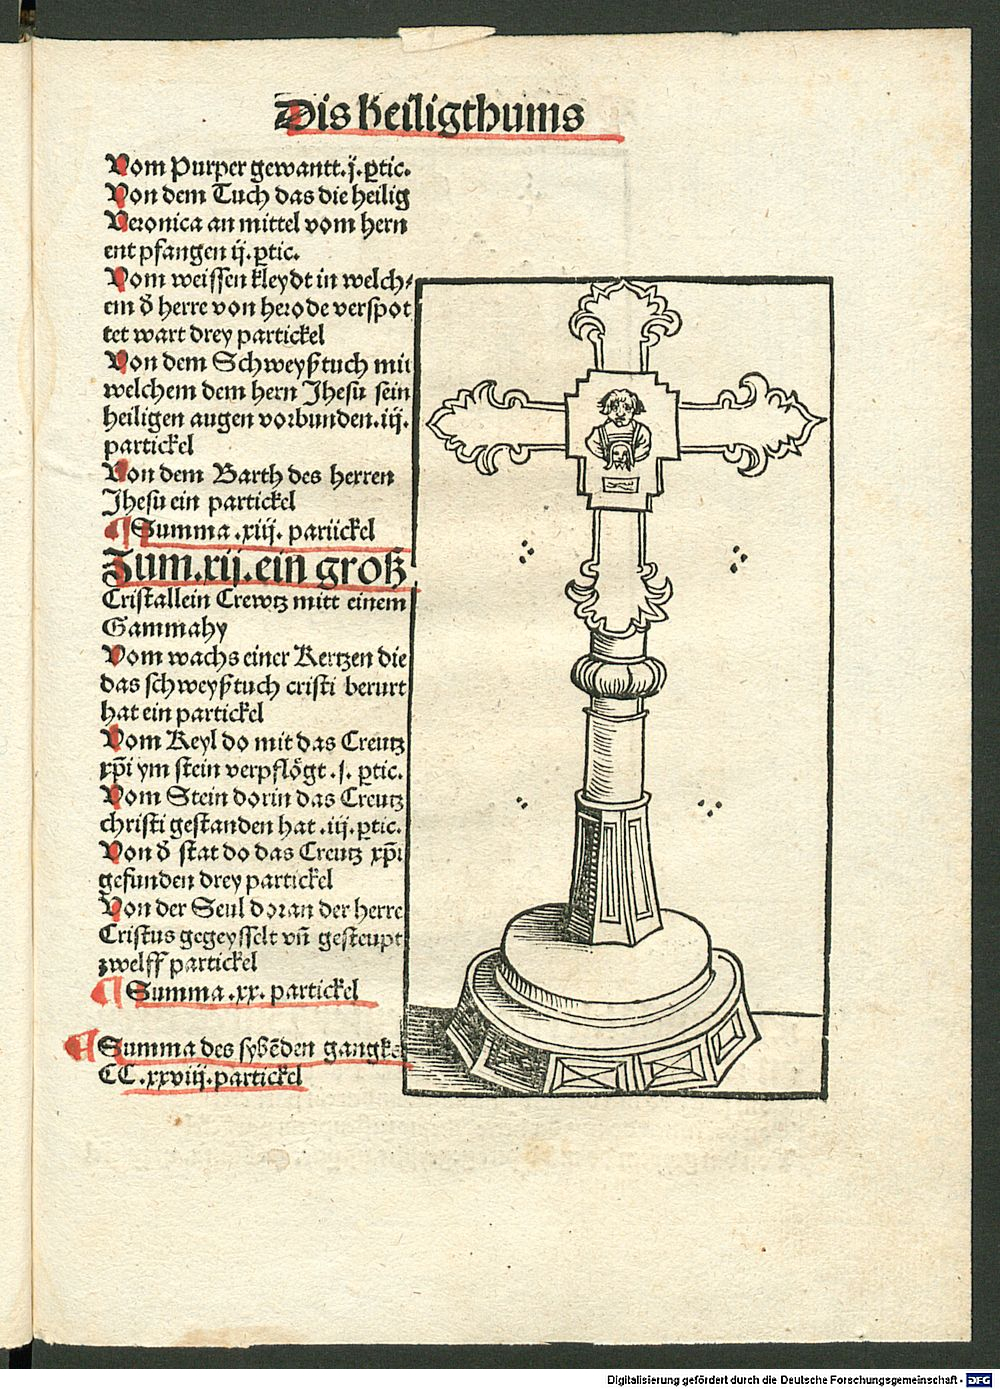 Dis heiligthums
Vom Purper gewantt.j.ꝑtic.
Von dem Tuch das die heilig
Veronica an mittel vom hern
ent pfangen ij.ꝑtic.
Vom weissen kleydt in welch⸗
em ď herre von herode verspot
tet wart drey partickel
Von dem Schweyßtuch mit
welchem dem hern Jhesu sein
heiligen augen vorbunden.iij.
partickel
Von dem Barth des herren
Jhesu ein partickel
¶ Summa .xiij. partickel
Zum.xij.ein groß
Cristallein Crewtz mitt einem
Gammahy
Vom wachs einer Kertzen die
das schweyßtuch cristi berurt
hat ein partickel
Vom Keyl do mit das Creutz
xp̄i ym stein verpflögt .j. ꝑtic.
Vom Stein dorin das Creutz
christi gestanden hat .iij.ꝑtic.
Von ď stat do das Creutz xp̄i
gefunden drey partickel
Von der Seul doran der herre
Cristus gegeysselt vn̄ gesteupt
zwelff partickel
¶ Summa .xx. partickel
¶ Summa des sybēden gangks
CC.xxviij.partickel
Digitalisierung gefördert durch die Deutsche Forschungsgemeinschaft - DFG